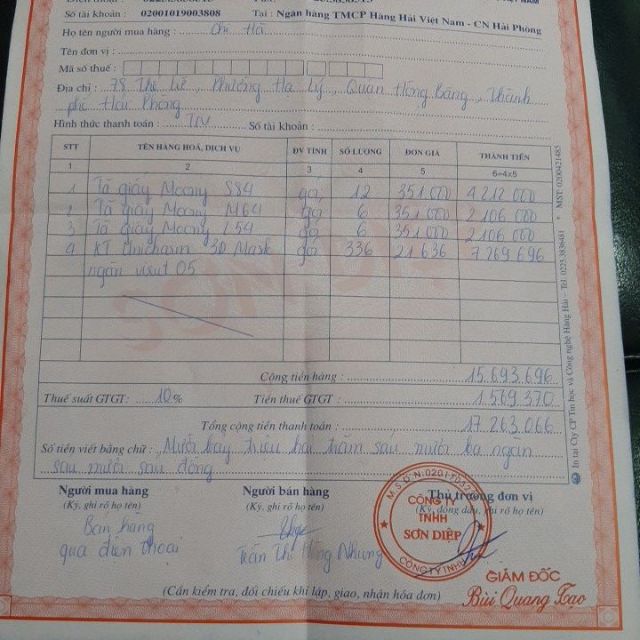 Số tài khoản : 02001019003808 Tại : Ngân hàng TMCP Hàng Hải Việt Nam - CN Hải Phòng
Họ tên người mua hàng : Chị Hà
Tên đơn vị :
Mã số thuế :
Địa chỉ : 78 Thế Lữ, Phường Hạ Lý, Quận Hồng Bàng, Thành
phố Hải Phòng
Hình thức thanh toán : TM Số tài khoản :
STT TÊN HÀNG HOÁ, DỊCH VỤ ĐV TÍNH SỐ LƯỢNG ĐƠN GIÁ THÀNH TIỀN
1 2 3 4 5 6=4x5
1 Tã giấy Moony S84 gói 12 351 000 4 212 000
2 Tã giấy Moony M64 gói 6 351 000 2 106 000
3 Tã giấy Moony L54 gói 6 351 000 2 106 000
4 KT Unicharm 3D Mask gói 336 21 636 7 269 696
ngăn virut 05
Cộng tiền hàng : 15.693.696
Thuế suất GTGT: 10 % Tiền thuế GTGT : 1.569.370
Tổng cộng tiền thanh toán : 17 263.066
Số tiền viết bằng chữ : Mười bảy triệu hai trăm sáu mươi ba ngàn
sáu mươi sáu đồng
Người mua hàng Người bán hàng Thủ trưởng đơn vị
(Ký, ghi rõ họ tên) (Ký, ghi rõ họ tên) (Ký, đóng dấu, ghi rõ họ tên)
Bán hàng
qua điện thoại Trần Thị Hồng Nhung
CÔNG TY
TNHH
SƠN DIỆP
GIÁM ĐỐC
Bùi Quang Tạo
(Cần kiểm tra, đối chiếu khi lập, giao, nhận hóa đơn)
SƠN DIỆP